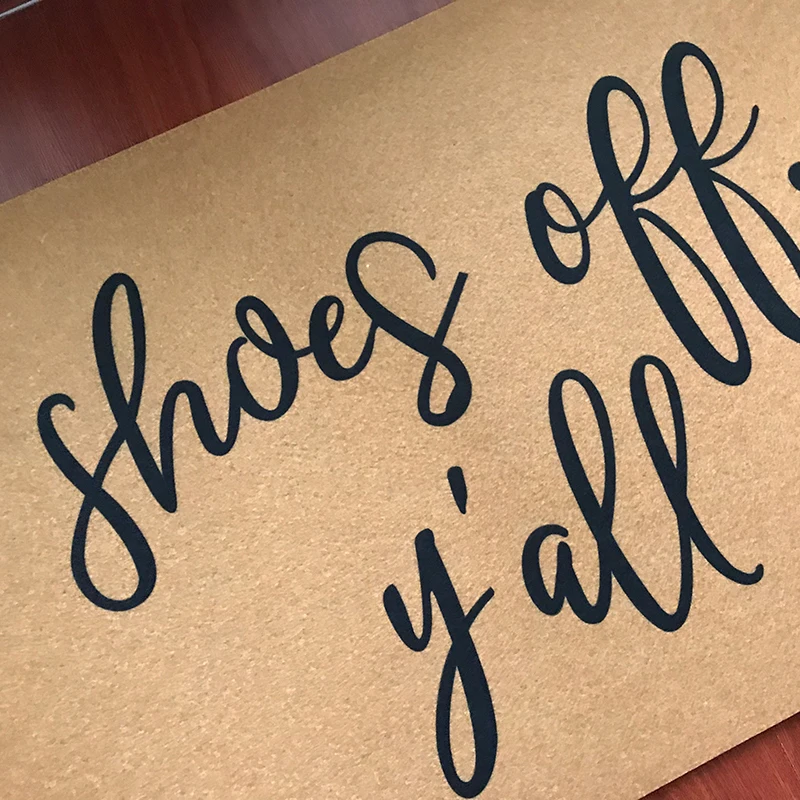 shoes off,
y'all